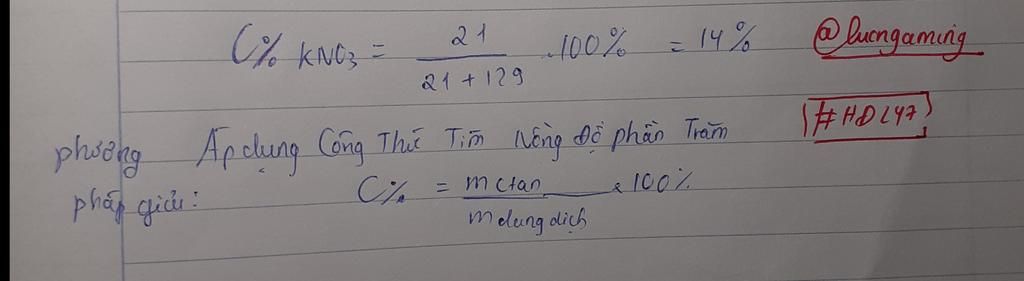 C% KNO3 = 21 / 21 + 129 . 100% = 14% @lucngaming
phương Áp dụng Công Thức Tìm Nồng Độ phần Trăm #HDL47
pháp giải: C% = mctan / mdung dịch x 100%